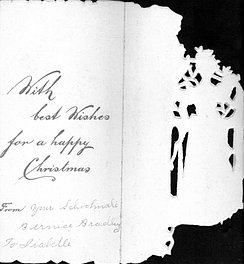 With
best Wishes
for a happy
Christmas
From Your Schoolmate
Bernice Bradley
To Isabelle